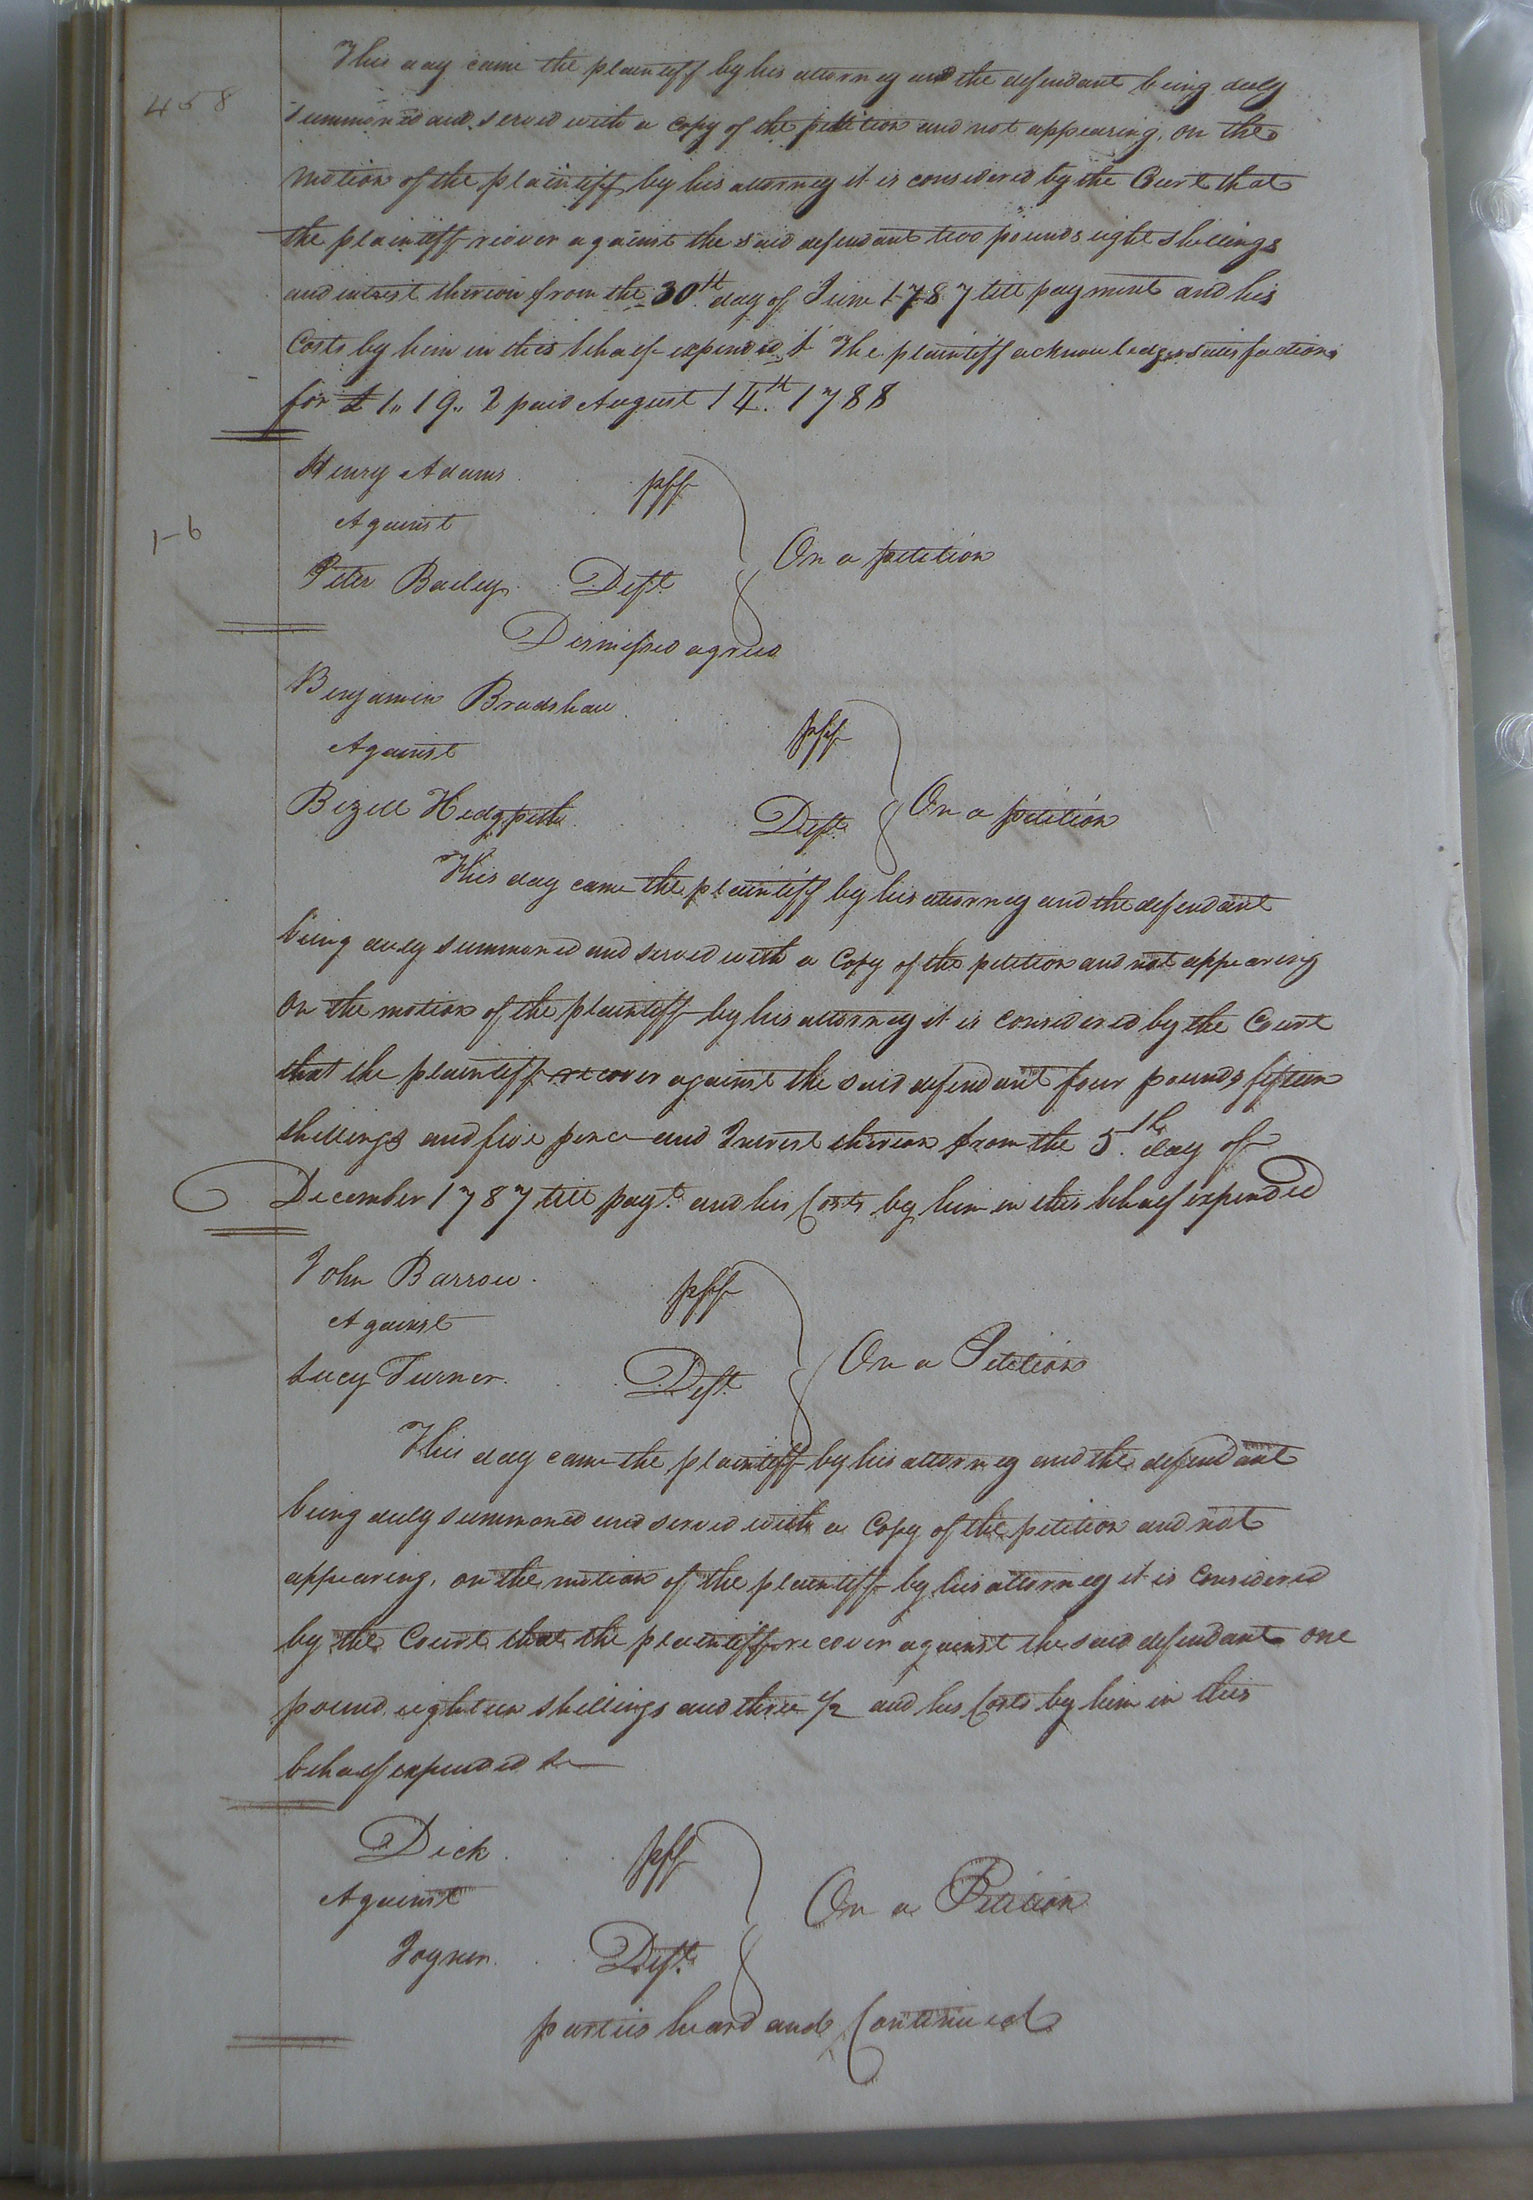 This day came the plaintiff by his attorney and the defendant being duly
458
summoned and served with a copy of the petition and not appearing, on the
motion of the plaintiff by his attorney it is considered by the Court that
the plaintiff recover against the said defendant two pounds eight shillings
and interest thereon from the 30th day of June 1787 till payment and his
Costs by him in this behalf expended & The plaintiff acknowledges satisfaction
for £ 1,, 19,, 2 paid August 14th. 1788
Henry Adams . . pff
Against
1-6
On a petition
Peter Bailey . . Deft.
Dismissed agreed
Benjamin Bradshaw . . pff
Against
On a petition
Bezell Hedgpeth . . Deft.
This day came the plaintiff by his attorney and the defendant
being duly summoned and served with a Copy of the petition and not appearing
On the motion of the plaintiff by his attorney it is considered by the Court
that the plaintiff recover against the said defendant four pounds fifteen
shillings and five pence and Interest thereon from the 5.th day of
December 1787 till payt. and his Costs by him in this behalf expended
John Barrow . . pff
Against
On a Petition
Lucy Turner . . Deft.
This day came the plaintiff by his attorney and the defendant
being duly summoned and served with a Copy of the petition and not
appearing, on the motion of the plaintiff by his attorney it is Considered
by the Court that the plaintiff recover against the said defendant one
pound eighteen shillings and three 1/2 and his Costs by him in this
behalf expended &
Dick . . pff
Against
On a Petition
Joyner . . Deft.
parties heard and Continued